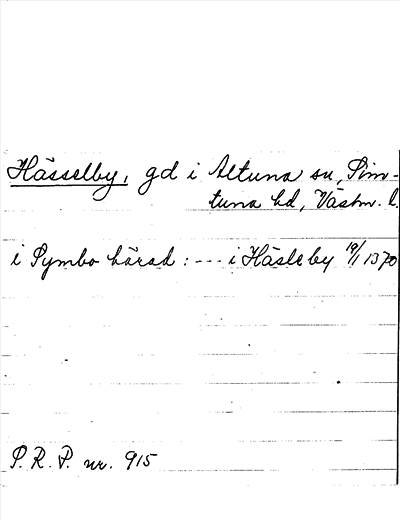 Hässelby, gd i Altuna sn, Sim-
tuna hd, Västm. l.
i Symbo härad : --- i Häsleby 19/1 1370
P. R. P. nr. 915